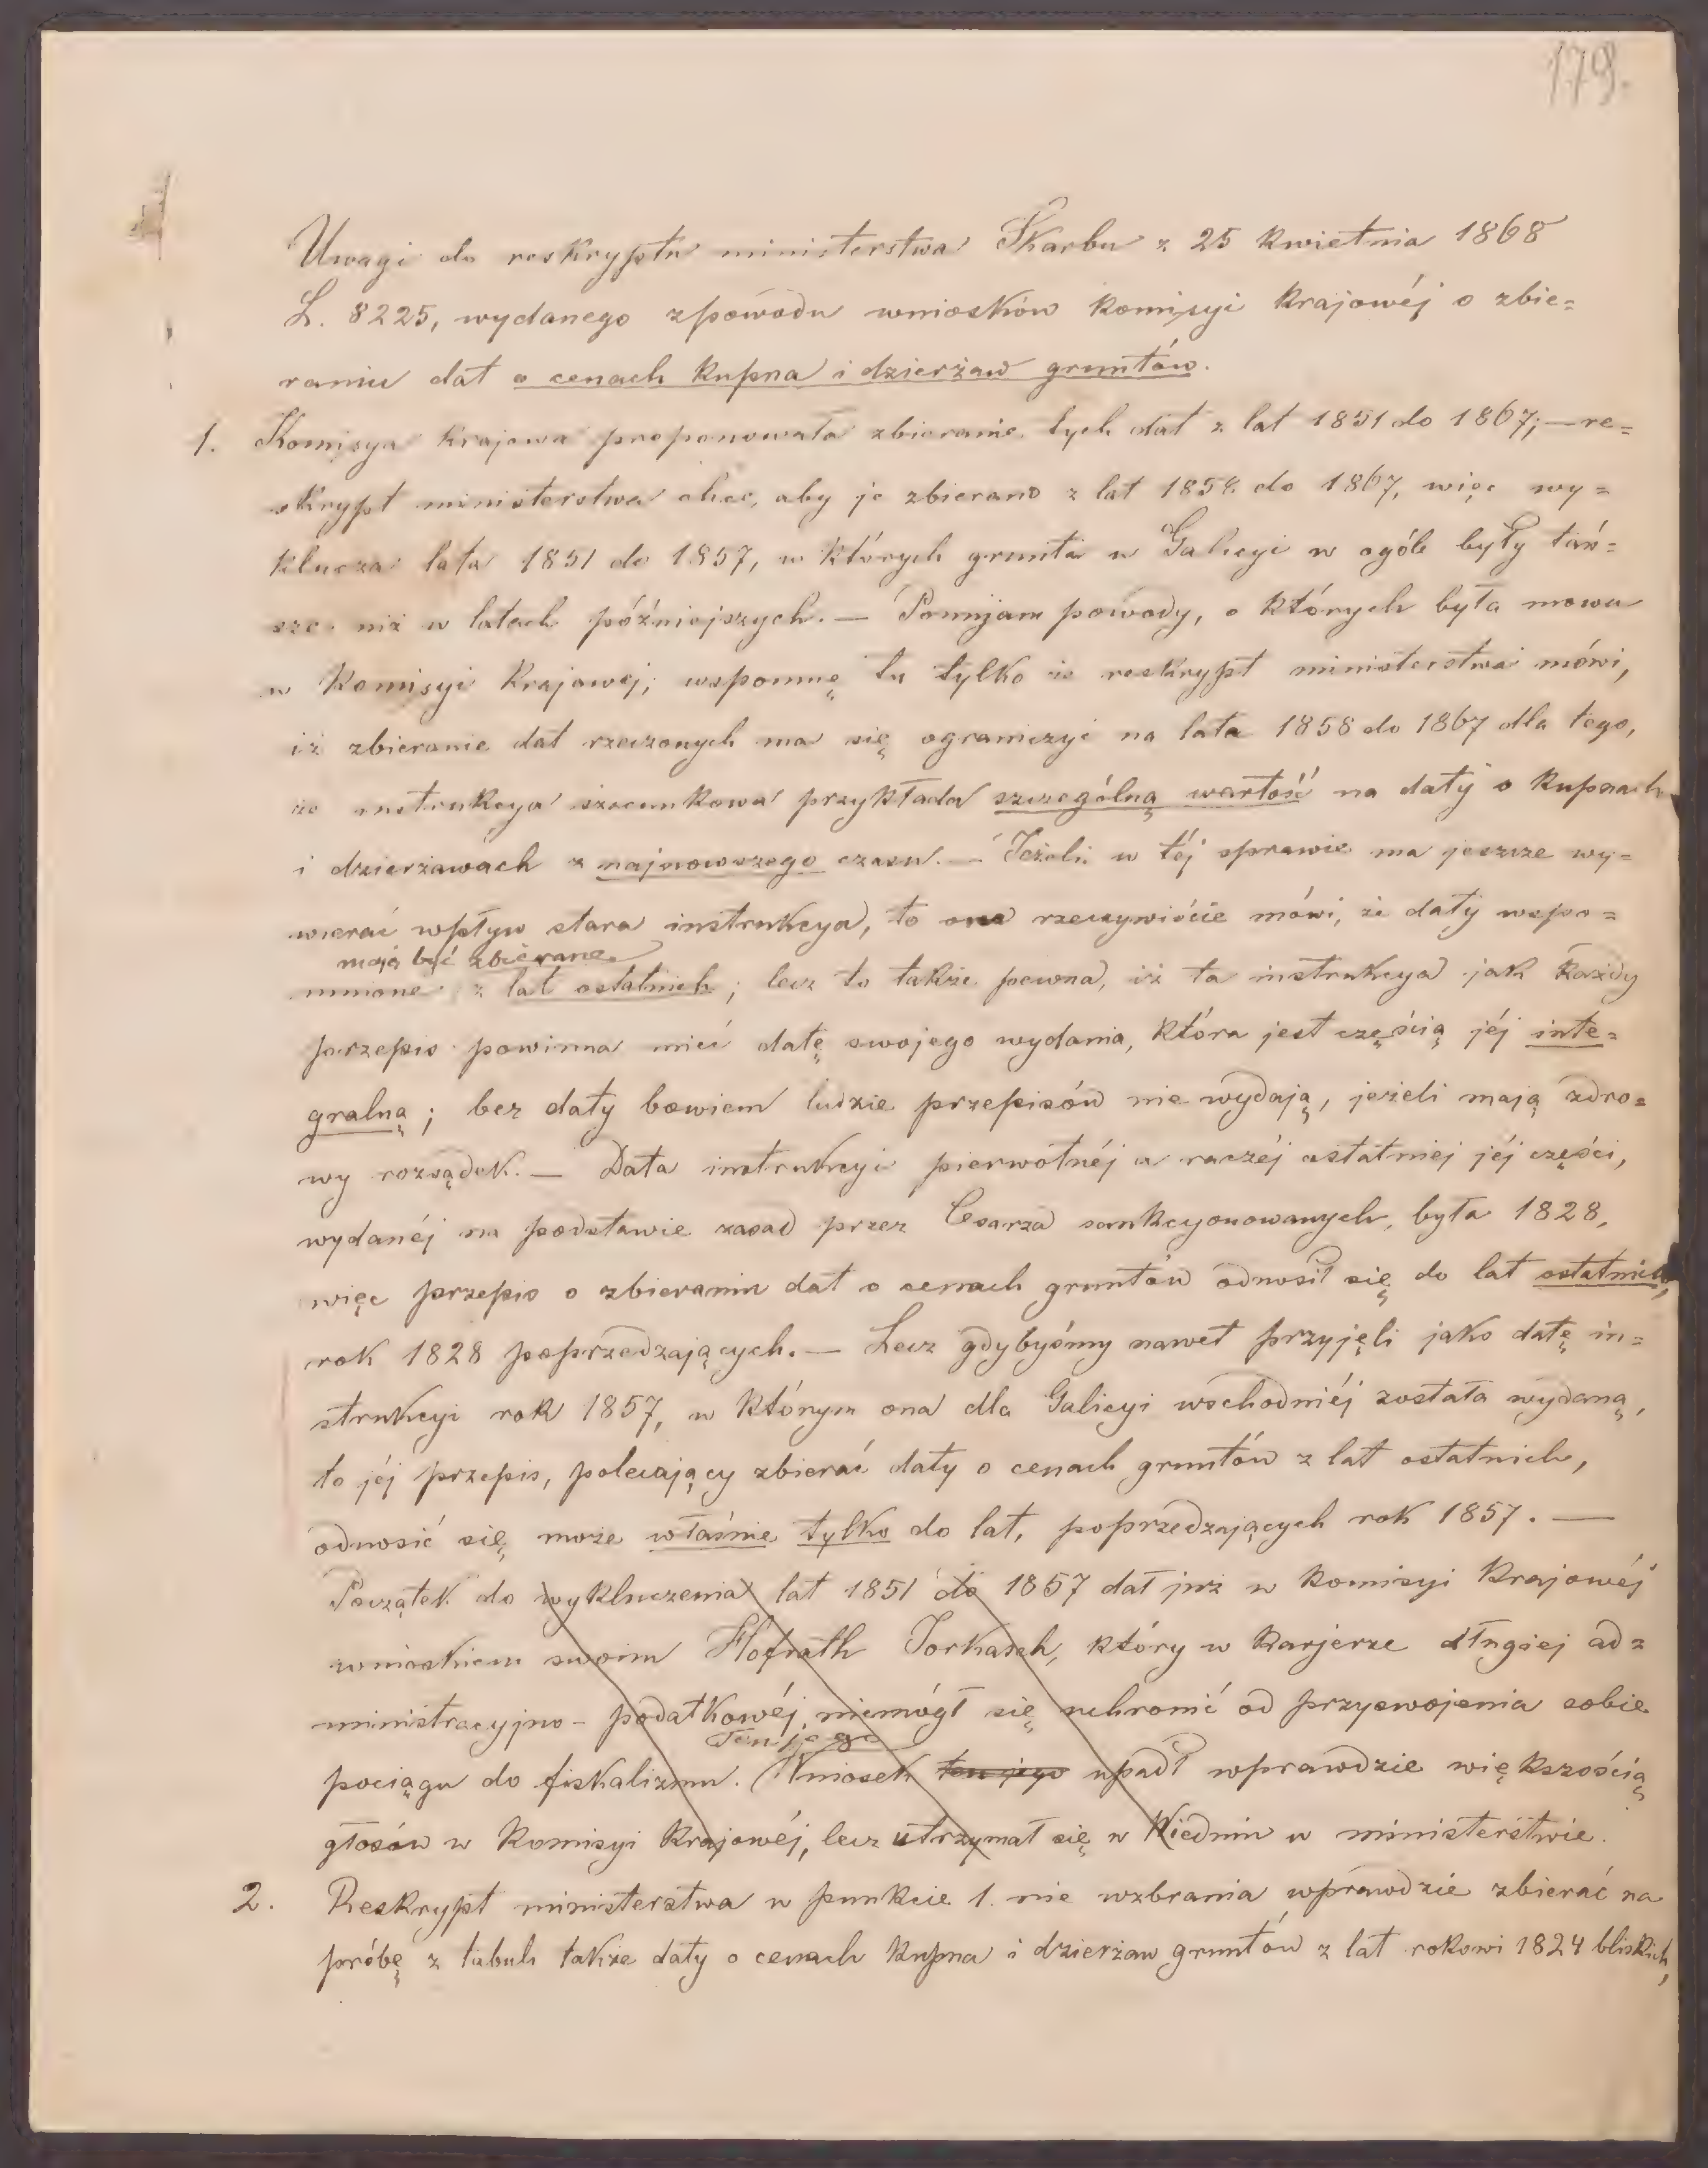 179.
Uwagi do reskryptu ministerstwa Skarbu z 25 kwietnia 1868
L. 8225, wydanego zpowodu wniosków komisyi krajowéj o zbie=
raniu dat o cenach kupna i dzierżaw gruntów.
1. Komisya krajowa proponowała zbieranie tych dat z lat 1851 do 1867; — re=
skrypt ministerstwa chce, aby je zbierano z lat 1858 do 1867, więc wy=
klucza lata 1851 do 1857, w których grunta w Galicyi w ogóle były tań=
sze niż w latach późniejszych. — Pomijam powody, o których była mowa
w Komisyi Krajowej; wspomnę tu tylko że reskrypt ministerstwa mówi,
iż zbieranie dat rzeczonych ma się ograniczyć na lata 1858 do 1867 dla tego,
że instrukcya szacunkowa przykłada szczególną wartość na daty o kupnach
i dzierżawach z najnowszego czasu. — Jeżeli w téj sprawie ma jeszcze wy=
wierać wpływ stara instrukcya, to ona rzeczywiście mówi, że daty wspo=
mają być zbierane
mnione z lat ostatnich; lecz to także pewna, iż ta instrukcya jak każdy
przepis powinna mieć datę swojego wydania, która jest częścią jéj inte=
gralną; bez daty bowiem ludzie przepisów nie wydają, jeżeli mają zdro=
wy rozsądek. — Data instrukcyi pierwotnéj a raczéj ostatniej jéj części,
wydanéj na podstawie zasad przez Cesarza sankcyonowanych, była 1828,
więc przepis o zbieraniu dat o cenach gruntów odnosił się do lat ostatnich,
rok 1828 poprzedzających. — Lecz gdybyśmy nawet przyjęli jako datę in=
strukcyi rok 1857, w którym ona dla Galicyi wschodniéj została wydaną,
to jéj przepis, polecający zbierać daty o cenach gruntów z lat ostatnich,
odnosić się może właśnie tylko do lat, poprzedzających rok 1857. —
Początek do wykluczenia lat 1851 do 1857 dał już w komisyi krajowéj
wnioskiem swoim Hofrath Torkasch, który w karjerze długiej ad=
ministracyjno-podatkowéj, niemógł się uchronić od przyswojenia sobie
Ten jego
pociągu do fiskalizmu. Wniosek ten jego upadł wprawdzie większością
głosów w Komisyi Krajowéj, lecz utrzymał się w Wiedniu w ministerstwie.
2. Reskrypt ministerstwa w punkcie 1. nie wzbrania wprawdzie zbierać na
próbę z tabuli także daty o cenach kupna i dzierżaw gruntów z lat rokowi 1824 bliskich,